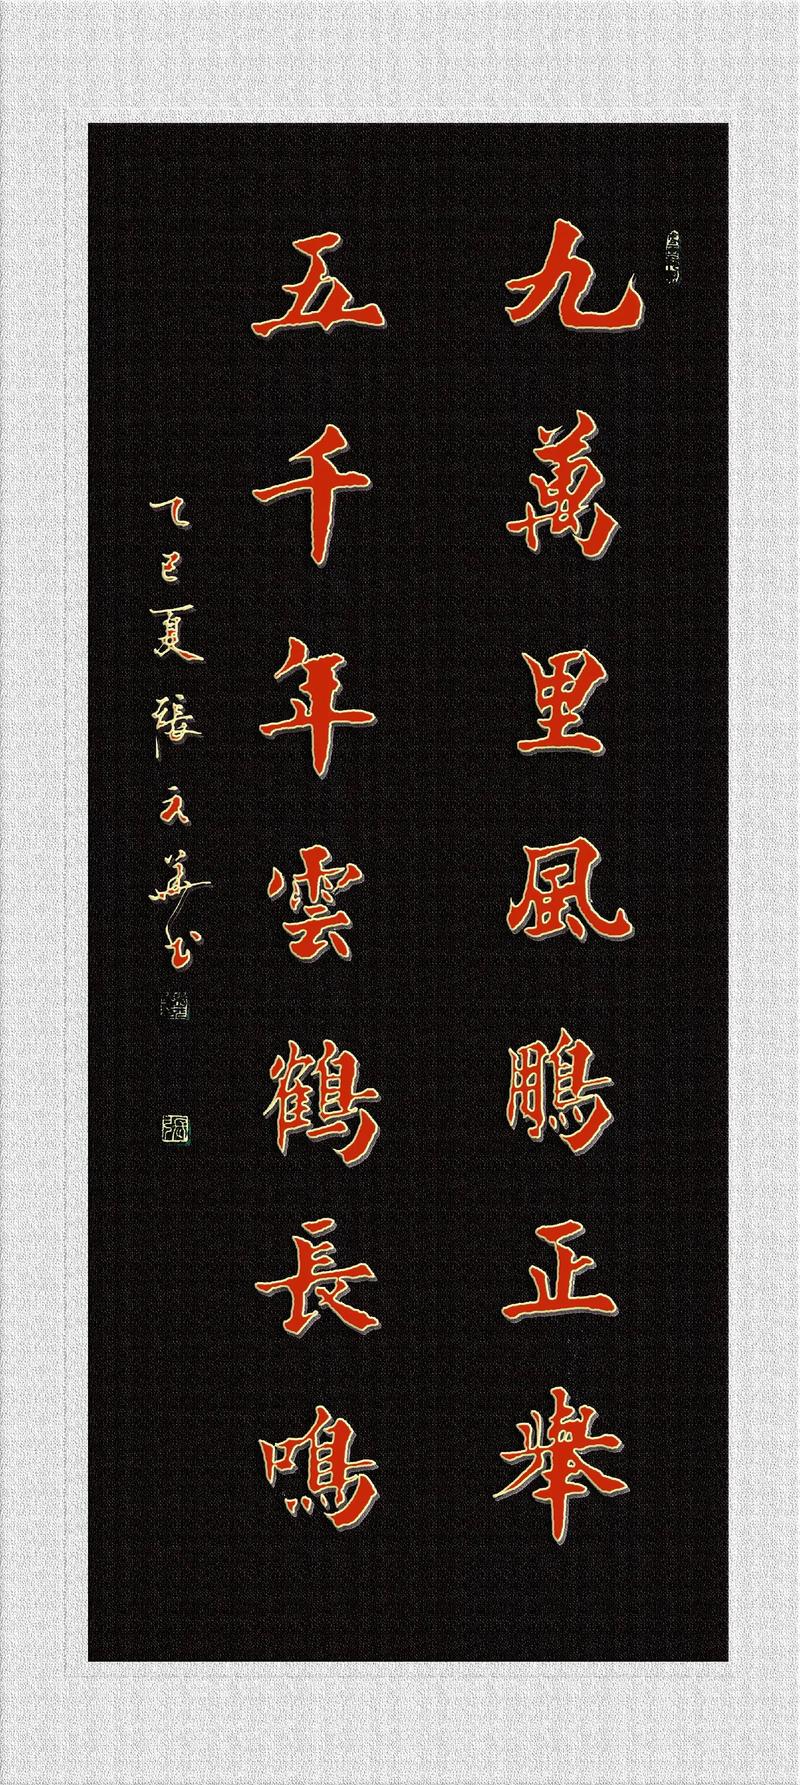 九萬里風鵬正舉
五千年雲鶴長鳴
乙巳夏張元華书